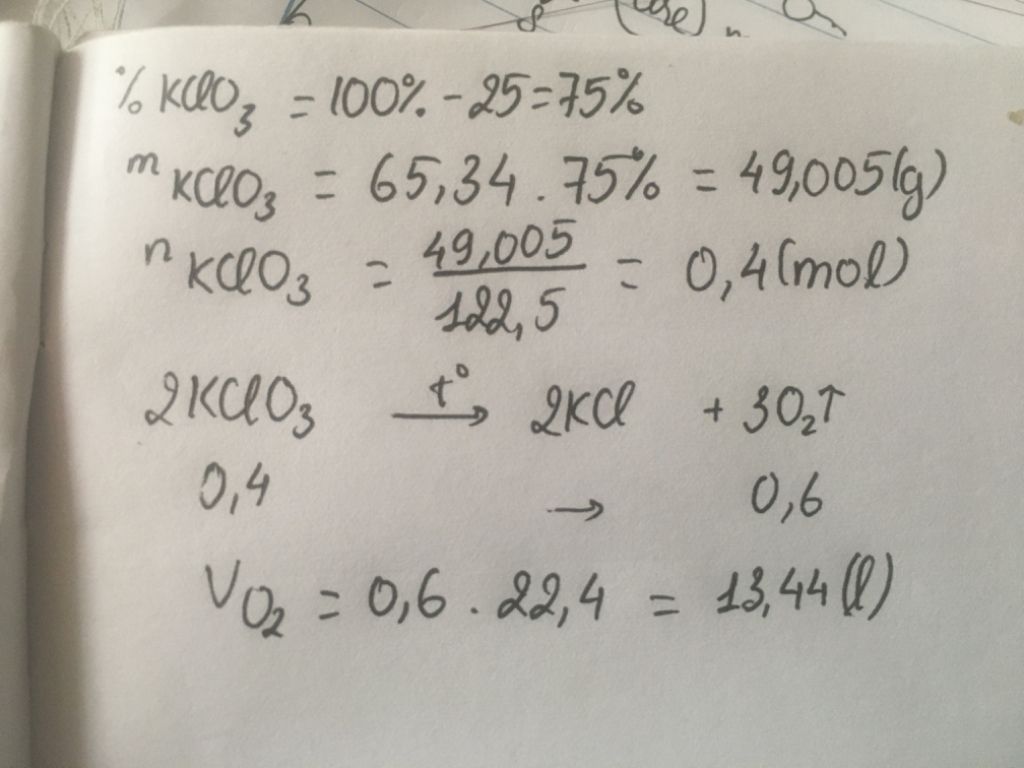 % KClO3 = 100% - 25 = 75%
m KClO3 = 65,34 . 75% = 49,005(g)
n KClO3 = 49,005 / 122,5 = 0,4(mol)
2KClO3 t° → 2KCl + 3O2↑
0,4 → 0,6
V O2 = 0,6 . 22,4 = 13,44(l)